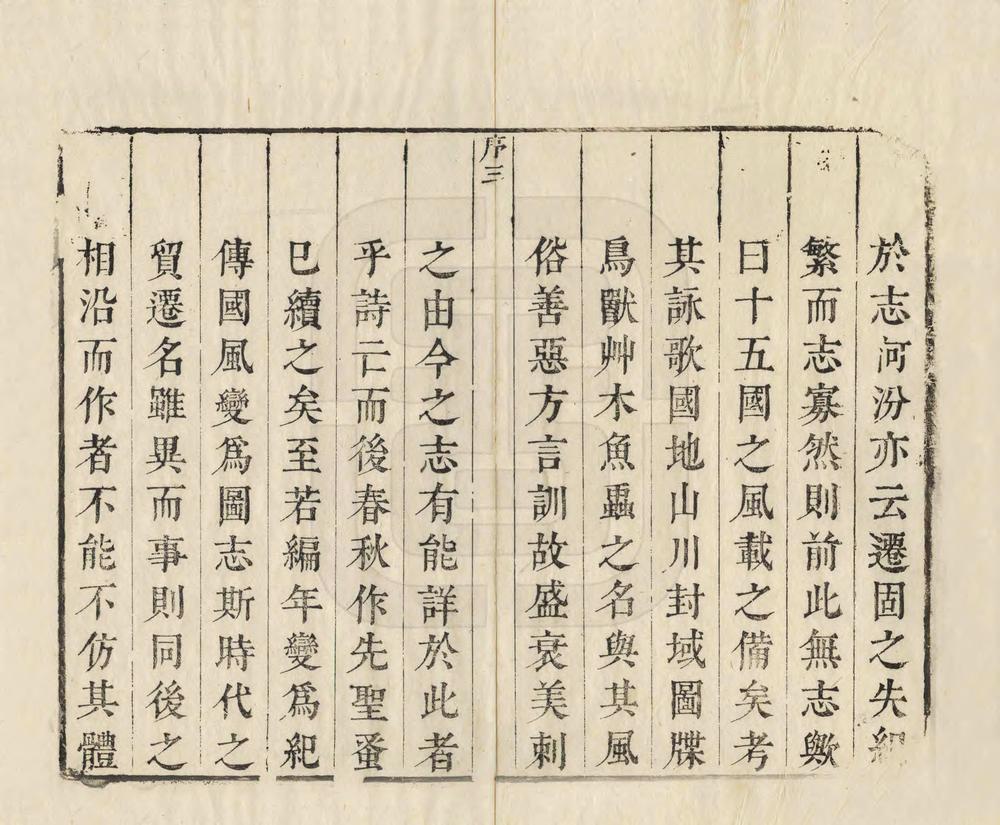 於志河汾亦云遷固之先紀
繁而志寡然則前此無志歟
曰十五國之風載之備矣考
其詠歌國地山川封域圖牒
鳥獸艸木魚蟲之名與其風
俗善惡方言訓故盛衰美刺
序三
之由今之志有能詳於此者
乎詩亡而後春秋作先聖蚤
已續之矣至若編年變爲紀
傳國風變爲圖志斯時代之
貿遷名雖異而事則同後之
相沿而作者不能不仿其體